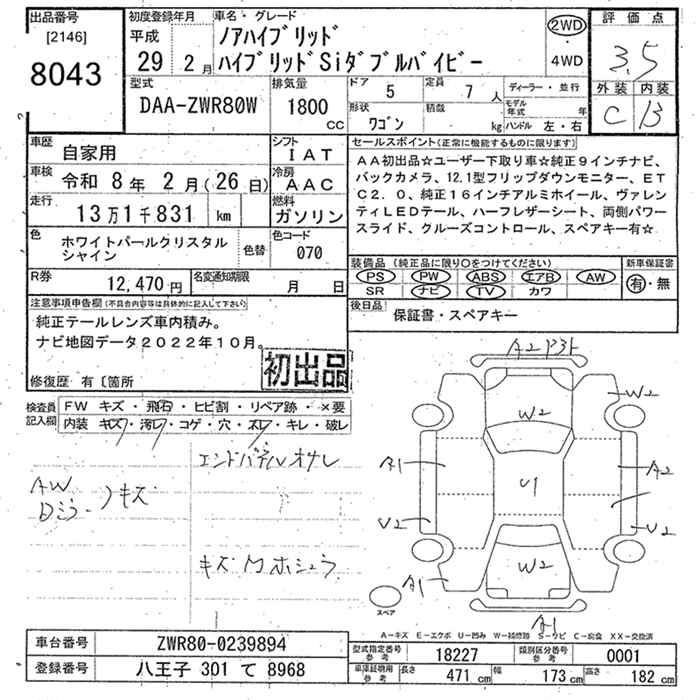 出品番号
[2146]
8043
初度登録年月
平成
29 2月
車名・グレード
ノアハイブリッド
ハイブリッドSiダブルバイビー
2WD
4WD
評価点
3.5
外装 内装
C B
型式
DAA-ZWR80W
排気量
1800
CC
ドア
5
定員
7 人
形状
ワゴン
積載
kg
ディーラー・並行
モデル年式 年
ハンドル 左・右
車歴
自家用
シフト
IAT
車検
令和 8年 2月(26日)
冷房
AAC
走行
13万1千831 km
燃料
ガソリン
色
ホワイトパールクリスタル
シャイン
色替
色コード
070
R券
12,470円
名変通知期限
月 日
セールスポイント(正常に機能するものに限ります)
AA初出品☆ユーザー下取り車☆純正9インチナビ、
バックカメラ、12.1型フリップダウンモニター、ET
C2.0、純正16インチアルミホイール、ヴァレン
ティLEDテール、ハーフレザーシート、両側パワー
スライド、クルーズコントロール、スペアキー有☆
装備品(純正品に限り○をつけてください)
PS PW ABS エアB AW
SR ナビ TV カワ
新車保証書
有・無
後日品
保証書・スペアキー
注意事項申告欄(不具合内容等は具体的に記入して下さい)
純正テールレンズ車内積み。
ナビ地図データ2022年10月。
初出品
修復歴 有〔箇所
検査員
記入欄
FW キズ・飛石・ヒビ割・リペア跡・×要
内装 キズ・汚レ・コゲ・穴・ズレ・キレ・破レ
エンドパネルオサレ
AW
Dミラー キズ
キズMホシュウ
A2
W2
W2
A1
A2
U1
U2
U2
W2
A1
A1
スペア
A-キズ E-エクボ U-凹み W-補修跡 S-サビ C-腐食 XX-交換済
車台番号
ZWR80-0239894
登録番号
八王子 301 て 8968
型式指定番号
参考
18227
類別区分番号
参考
0001
車庫証明用
参考
長さ 471 cm
幅 173 cm
高さ 182 cm